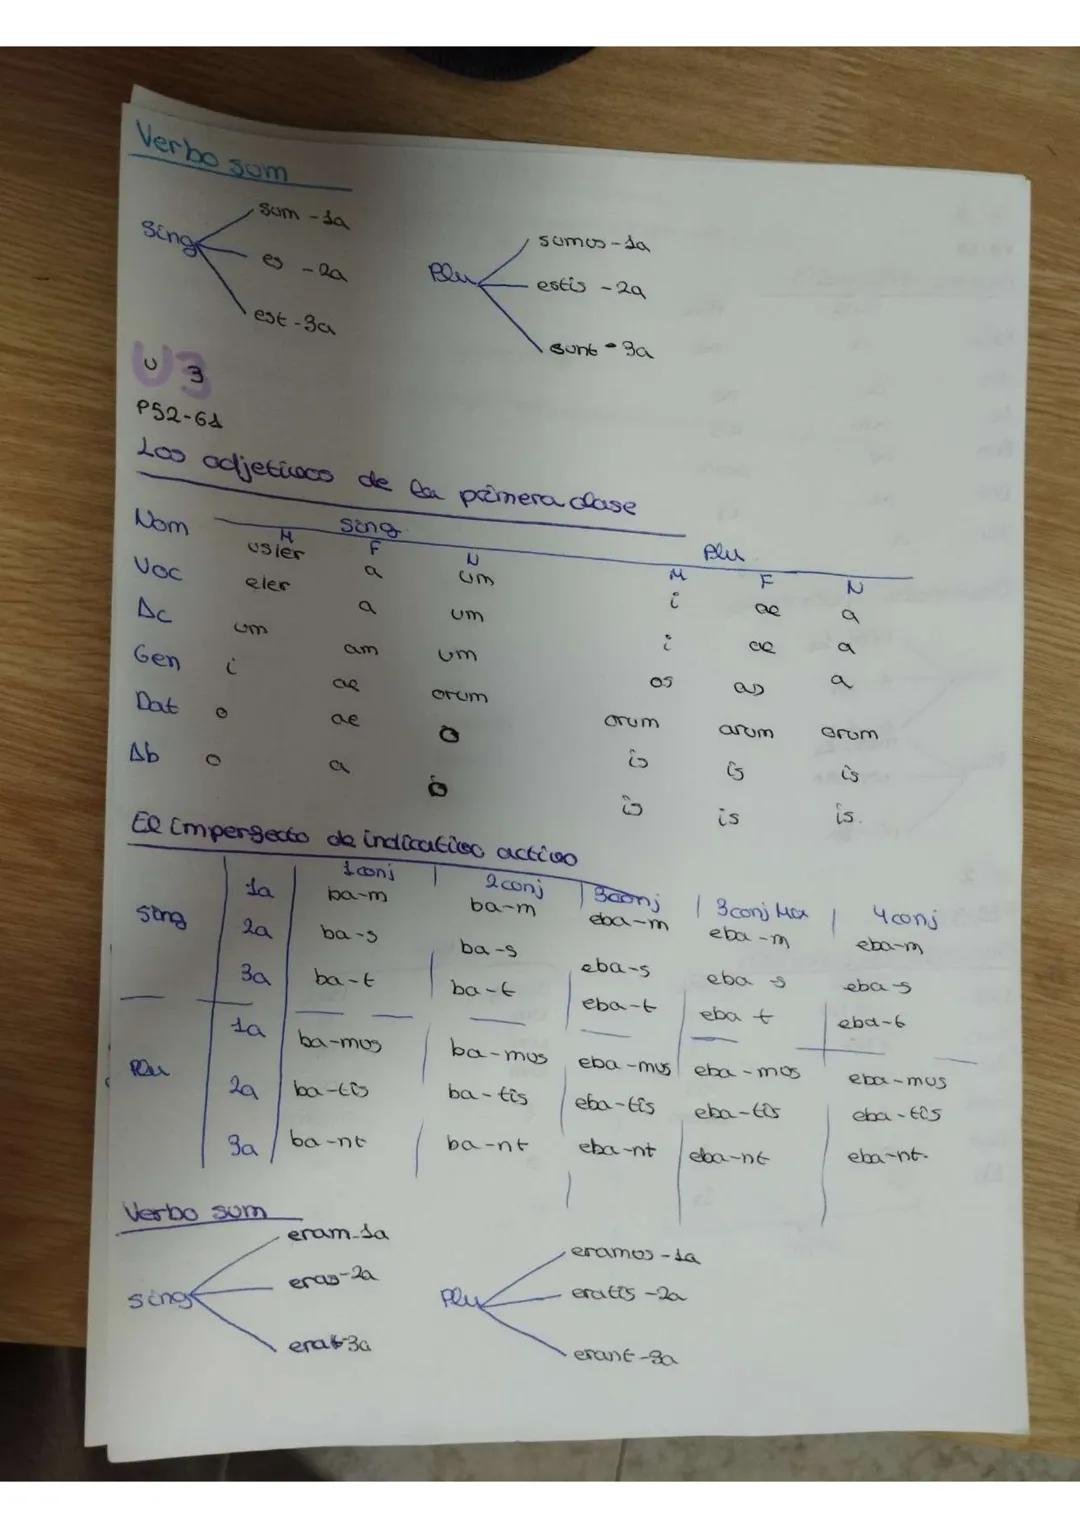 Verbo sum
Sing
sum - 1a
es - 2a
est - 3a
Plu
sumus - 1a
estis - 2a
sunt - 3a
U 3
P52-61
Los adjetivos de la primera clase
Sing Plu
M F N M F N
Nom us/er a um i ae a
Voc e/er a um i ae a
Ac um am um os as a
Gen i ae orum orum arum orum
Dat o ae o is is is
Ab o a o is is is.
El imperfecto de indicativo activo
1 conj | 2 conj | 3 conj | 3 conj Mix | 4 conj
Sing 1a ba-m ba-m eba-m eba-m eba-m
2a ba-s ba-s eba-s eba s eba-s
3a ba-t ba-t eba-t eba t eba-t
Plu 1a ba-mus ba-mus eba-mus eba-mus eba-mus
2a ba-tis ba-tis eba-tis eba-tis eba-tis
3a ba-nt ba-nt eba-nt eba-nt eba-nt.
Verbo sum
sing
eram-1a
eras-2a
erat-3a
Plu
eramus-1a
eratis-2a
erant-3a